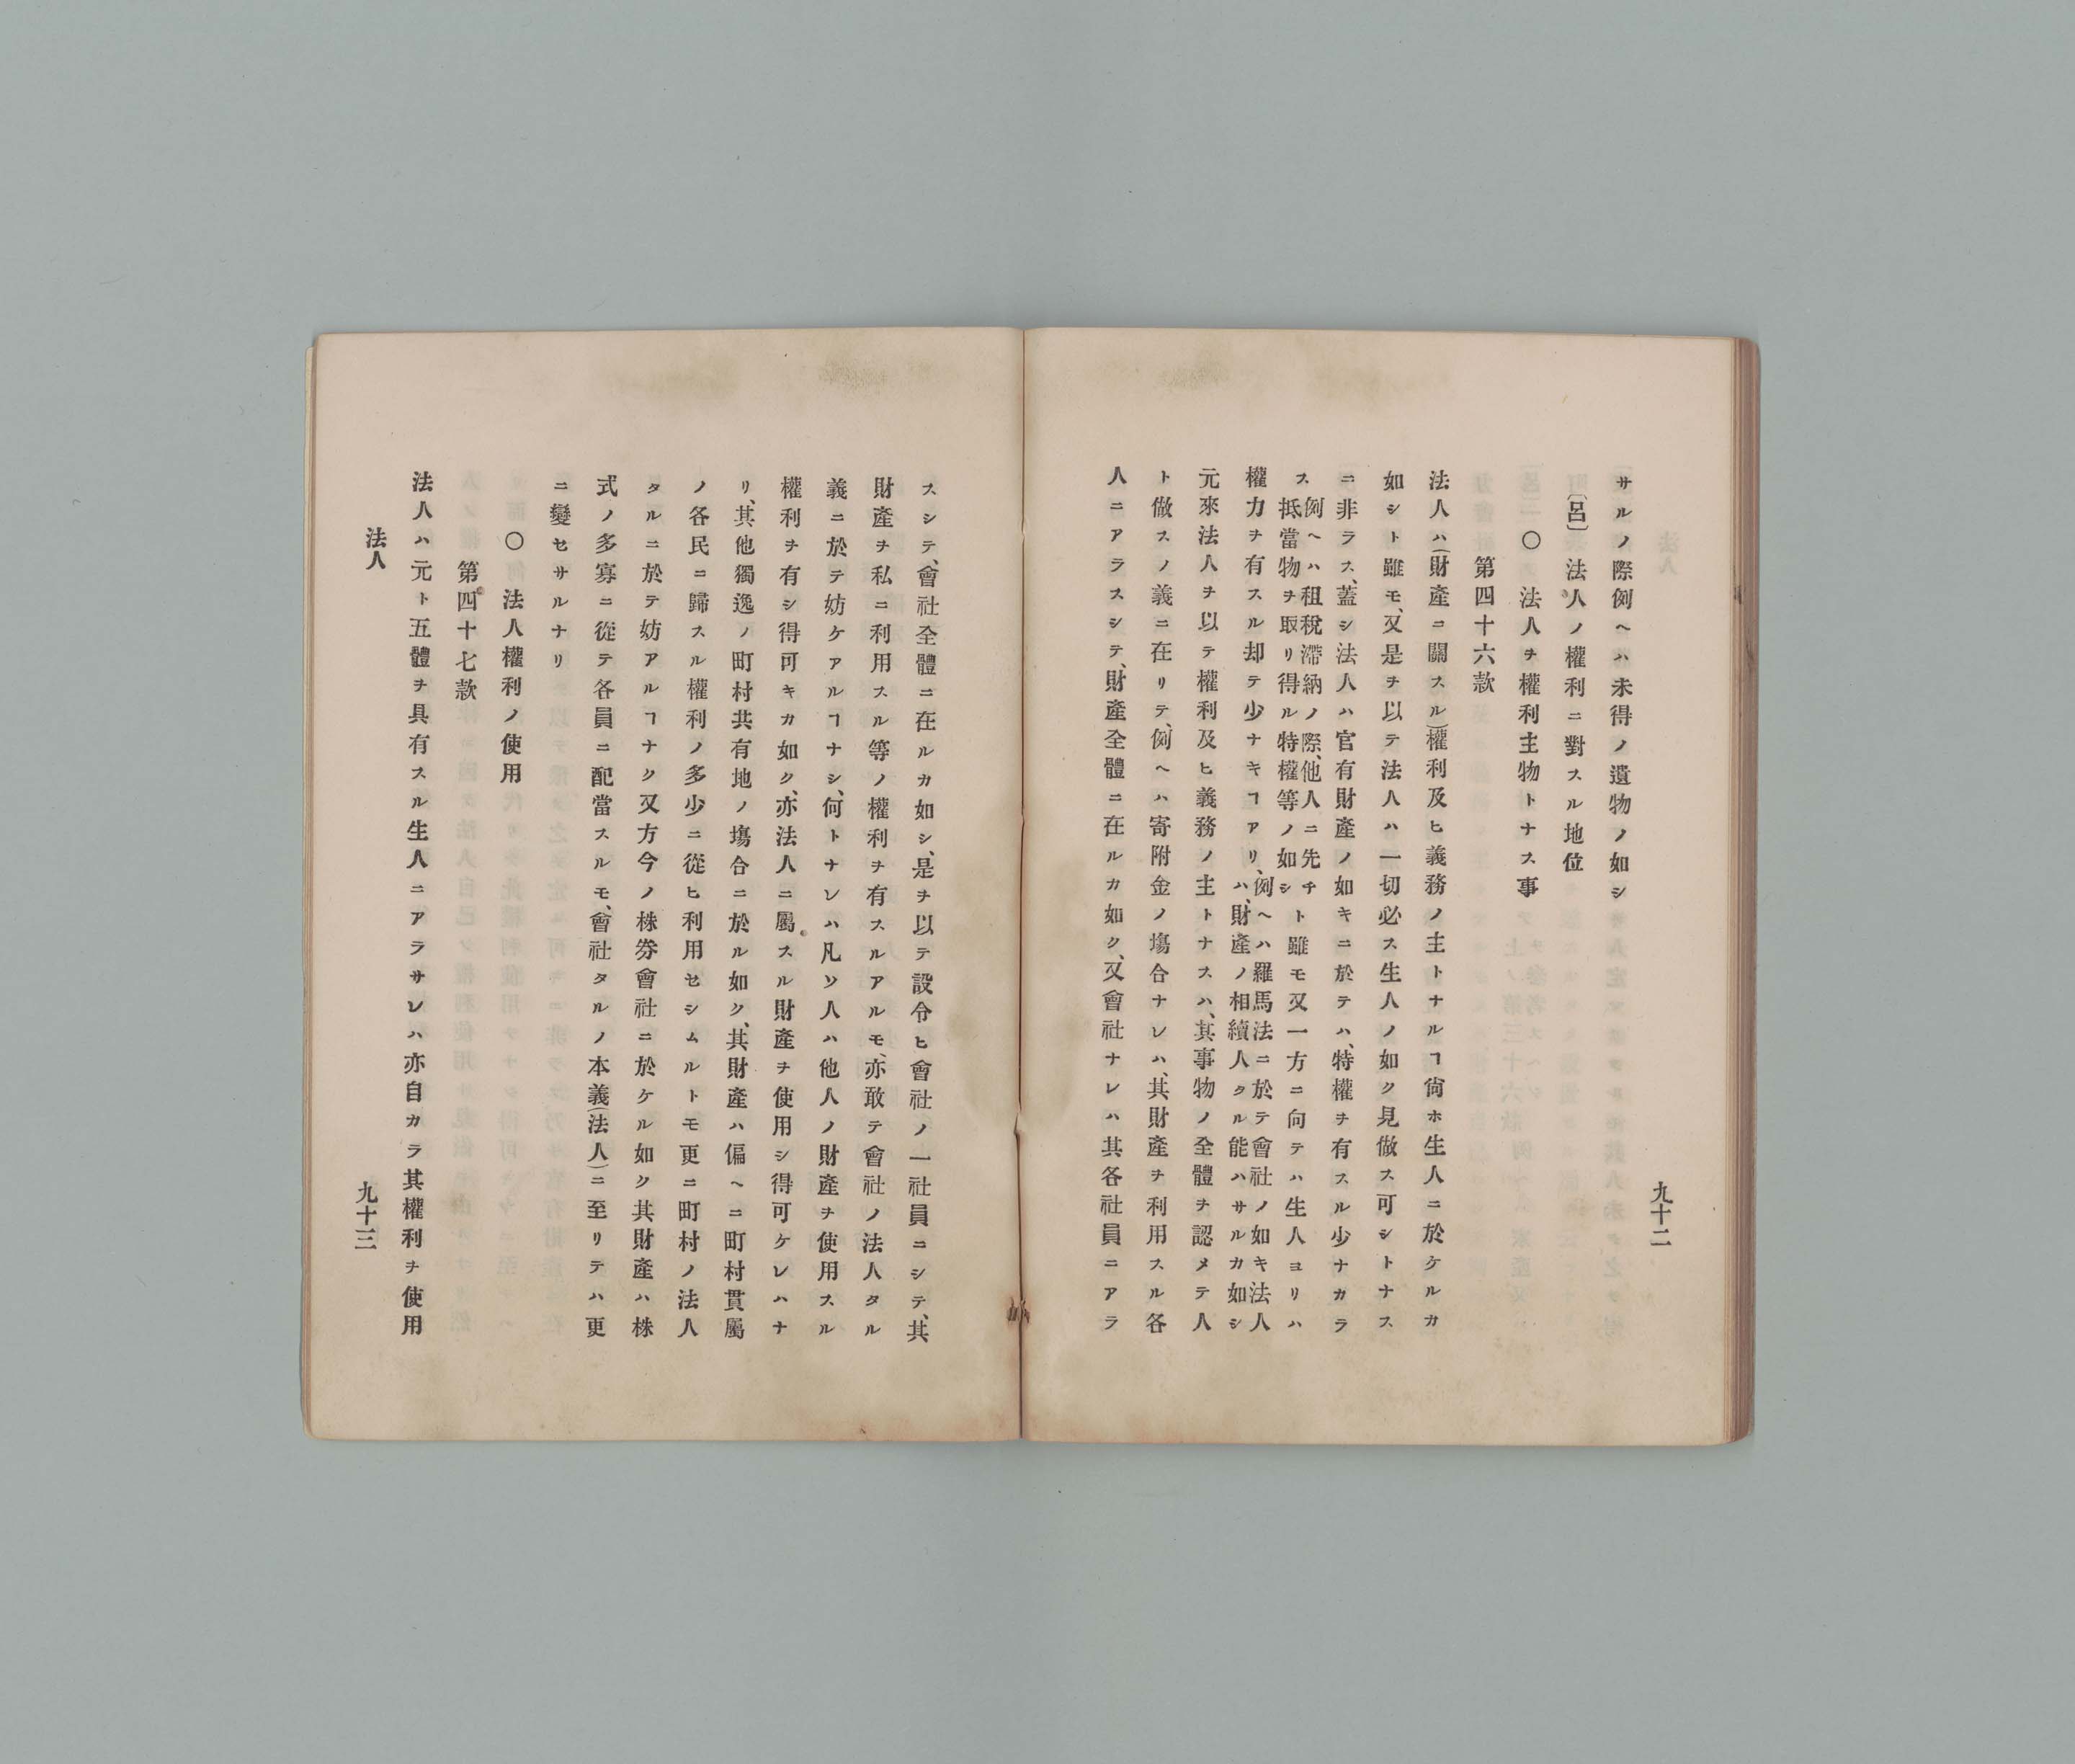 サルノ際例ヘハ未得ノ遺物ノ如シ
〔呂〕法人ノ權利ニ對スル地位
〇 法人ヲ權利主物トナス事
第四十六款
法人ハ(財產ニ關スル)權利及ヒ義務ノ主トナルヿ尙ホ生人ニ於ケルカ
如シト雖モ、又是ヲ以テ法人ハ一切必ス生人ノ如ク見做ス可シトナス
ニ非ラス、蓋シ法人ハ官有財產ノ如キニ於テハ、特權ヲ有スル少ナカラ
ス例ヘハ租稅滯納ノ際、他人ニ先チ
抵當物ヲ取リ得ル特權等ノ如シト雖モ又一方ニ向テハ生人ヨリハ
權力ヲ有スル却テ少ナキヿアリ、例ヘハ羅馬法ニ於テ會社ノ如キ法人
ハ、財產ノ相續人タル能ハサルカ如シ
元來法人ヲ以テ權利及ヒ義務ノ主トナスハ、其事物ノ全體ヲ認メテ人
ト做スノ義ニ在リテ、例ヘハ寄附金ノ塲合ナレハ、其財產ヲ利用スル各
人ニアラスシテ、財產全體ニ在ルカ如ク、又會社ナレハ其各社員ニアラ
九十二
スシテ、會社全體ニ在ルカ如シ、是ヲ以テ設令ヒ會社ノ一社員ニシテ、其
財產ヲ私ニ利用スル等ノ權利ヲ有スルアルモ、亦敢テ會社ノ法人タル
義ニ於テ妨ケアルヿナシ、何トナレハ凡ソ人ハ他人ノ財產ヲ使用スル
權利ヲ有シ得可キカ如ク、亦法人ニ屬スル財產ヲ使用シ得可ケレハナ
リ、其他獨逸ノ町村共有地ノ塲合ニ於ル如ク、其財產ハ偏ヘニ町村貫屬
ノ各民ニ歸スル權利ノ多少ニ從ヒ利用セシムルトモ更ニ町村ノ法人
タルニ於テ妨アルヿナク又方今ノ株券會社ニ於ケル如ク其財產ハ株
式ノ多寡ニ從テ各員ニ配當スルモ、會社タルノ本義(法人)ニ至リテハ更
ニ變セサルナリ
〇 法人權利ノ使用
第四十七款
法人ハ元ト五體ヲ具有スル生人ニアラサレハ亦自カラ其權利ヲ使用
法人
九十三